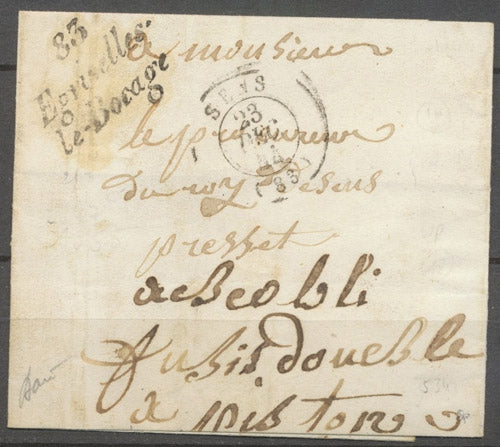 83
Egriselles-
le-Bocage
SENS
23
DEC
1833
a monsieur
le procureur
du roy desens
presset
acheobli
fusis doueble
a piston